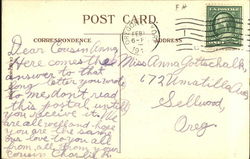 POST CARD
CORRESPONDENCE
ADDRESS
FEB
Dear Cousin Anna
Here comes the
answer to that
long letter you wrote
to me, don't read
this postal until
you receive it. We
are all well and hope
you are the same
our love to you all
from all, from your
Cousin
Miss Anna Gottschalk
672 Umatilla Ave
Sellwood
Oreg